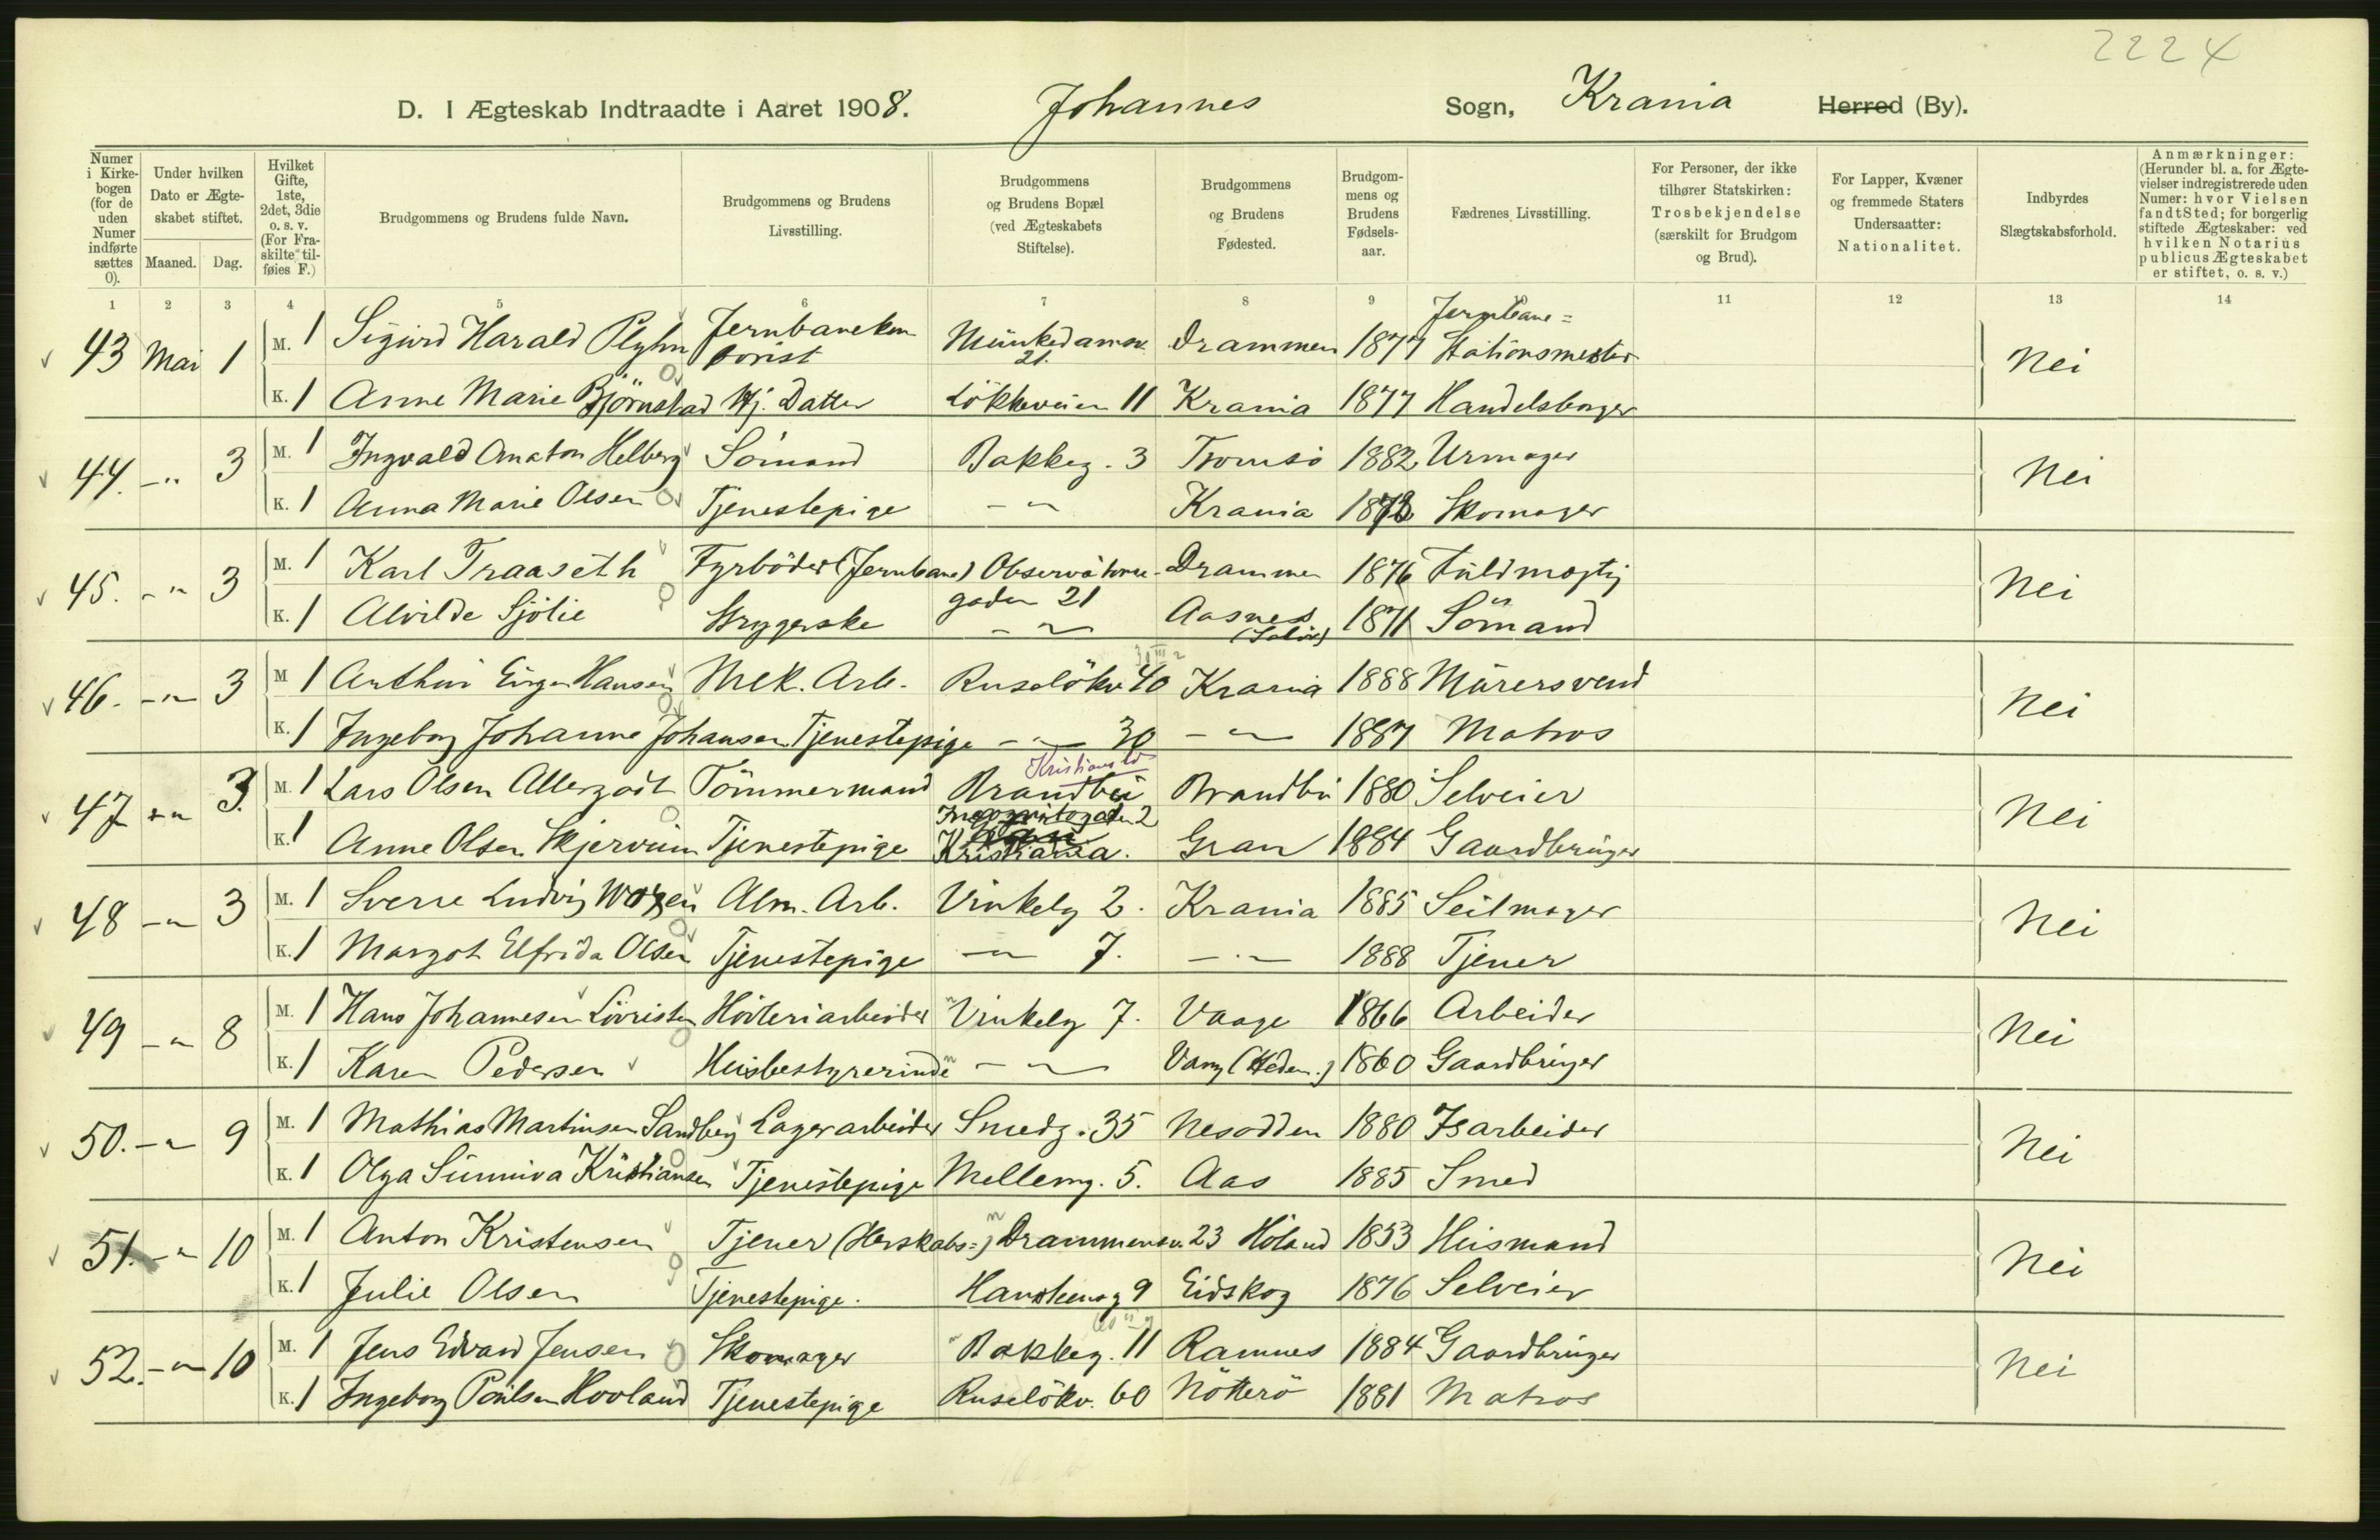 2224
D. I Ægteskab Indtraadte i Aaret 1908. Johannes Sogn, Krania Herred (By).
Numer i Kirkebogen (for de uden Numer indførte sættes 0).
Under hvilken Dato er Ægteskabet stiftet.
Maaned. Dag.
Hvilket Gifte, 1ste, 2det, 3die o. s. v. (For Fraskilte tilføies F.)
Brudgommens og Brudens fulde Navn.
Brudgommens og Brudens Livsstilling.
Brudgommens og Brudens Bopæl (ved Ægteskabets Stiftelse).
Brudgommens og Brudens Fødested.
Brudgommens og Brudens Fødselsaar.
Fædrenes Livsstilling.
For Personer, der ikke tilhører Statskirken: Trosbekjendelse (særskilt for Brudgom og Brud).
For Lapper, Kvæner og fremmede Staters Undersaatter: Nationalitet.
Indbyrdes Slægtskabsforhold.
Anmærkninger: (Herunder bl. a. for Ægtevielser indregistrerede uden Numer: hvor Vielsen fandt Sted; for borgerlig stiftede Ægteskaber: ved hvilken Notarius publicus Ægteskabet er stiftet, o. s. v.)
1 2 3 4 5 6 7 8 9 10 11 12 13 14
43 Mai 1 M. 1 Sigurd Harald Plyhn Jernbanekontorist Munkedamsv. 21. Drammen 1877 Jernbane= Stationsmester Nei
K. 1 Anne Marie Björnstad Hj. Datter Lökkeveien 11 Krania 1877 Handelsborger
44. -"- 3 M. 1 Ingvald Anaton Helberg Sömand Bakkeg. 3 Tromsö 1882 Urmager Nei
K. 1 Anna Marie Olsen Tjenestepige -"- Krania Skomager
45. -"- 3 M. 1 Karl Traaseth Fyrböder (Jernbane) Observatoriegaden 21 Drammen 1876 Fuldmægtig Nei
K. 1 Alvilde Sjölie Strygerske -"- Aasnes (Solör) 1871 Sömand
46. -"- 3 M 1 Arthur Hansen Mek. Arb. Ruselökv 40 Krania 1888 Murersvend Nei
K. 1 Ingeborg Johanne Johansen Tjenestepige -"- 30 -"- 1887 Matros
47 -"- 3. M. 1 Lars Olsen Tömmermand Brandbu Brandbu 1880 Selveier Nei
K. 1 Anne Olsen Skjervum Tjenestepige Incognitogaden 2 Kristiania. Gran 1884 Gaardbruger
48 -"- 3 M. 1 Sverre Ludvig Alm. Arb. Vinkelg 2. Krania 1885 Seilmager Nei
K. 1 Margot Elfrida Olsen Tjenestepige -"- 7. -"- 1888 Tjener
49 -"- 8 M. 1 Hans Johannesen Vinkelg 7. Vaage 1866 Arbeider Nei
K. 1 Karen Pedersen Husbestyrerinde -"- Vang (Hedem.) 1860 Gaardbruger
50. -"- 9 M. 1 Mathias Martinsen Sandberg Lagerarbeider Smedg. 35 Nesodden 1880 Isarbeider Nei
K. 1 Olga Sunniva Kristiansen Tjenestepige Mellemg. 5. Aas 1885 Smed
51. -"- 10 M. 1 Anton Kristensen Tjener (Herskabs=) Drammensv. 23 Höland 1853 Husmand Nei
K. 1 Julie Olsen Tjenestepige. Hansteensg 9 Eidskog 1876 Selveier
52. -"- 10 M. 1 Jens Edvard Jensen Skomager Bakkeg. 11 Ramnes 1884 Gaardbruger Nei
K. 1 Ingeborg Paulsen Hovland Tjenestepige Ruselökv. 60 Nötterö 1881 Matros